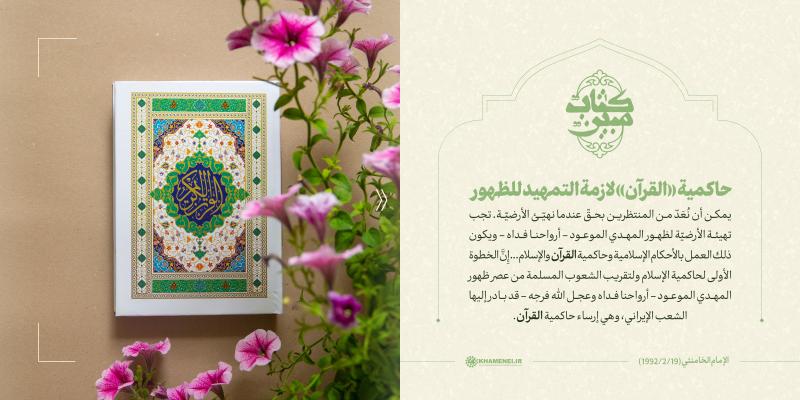 كتاب مبين
حاكمية «القرآن» لازمة التمهيد للظهور
يمكن أن نُعَدّ من المنتظرين بحقّ عندما نهيّئ الأرضيّة. تجب
تهيئة الأرضيّة لظهور المهدي الموعود – أرواحنا فداه – ويكون
ذلك العمل بالأحكام الإسلامية وحاكمية القرآن والإسلام...إنَّ الخطوة
الأولى لحاكمية الإسلام ولتقريب الشعوب المسلمة من عصر ظهور
المهدي الموعود – أرواحنا فداه وعجل الله فرجه – قد بادر إليها
الشعب الإيراني، وهي إرساء حاكمية القرآن.
الإمام الخامنئي (1992/2/19)
KHAMENEI.IR
القرآن الكريم